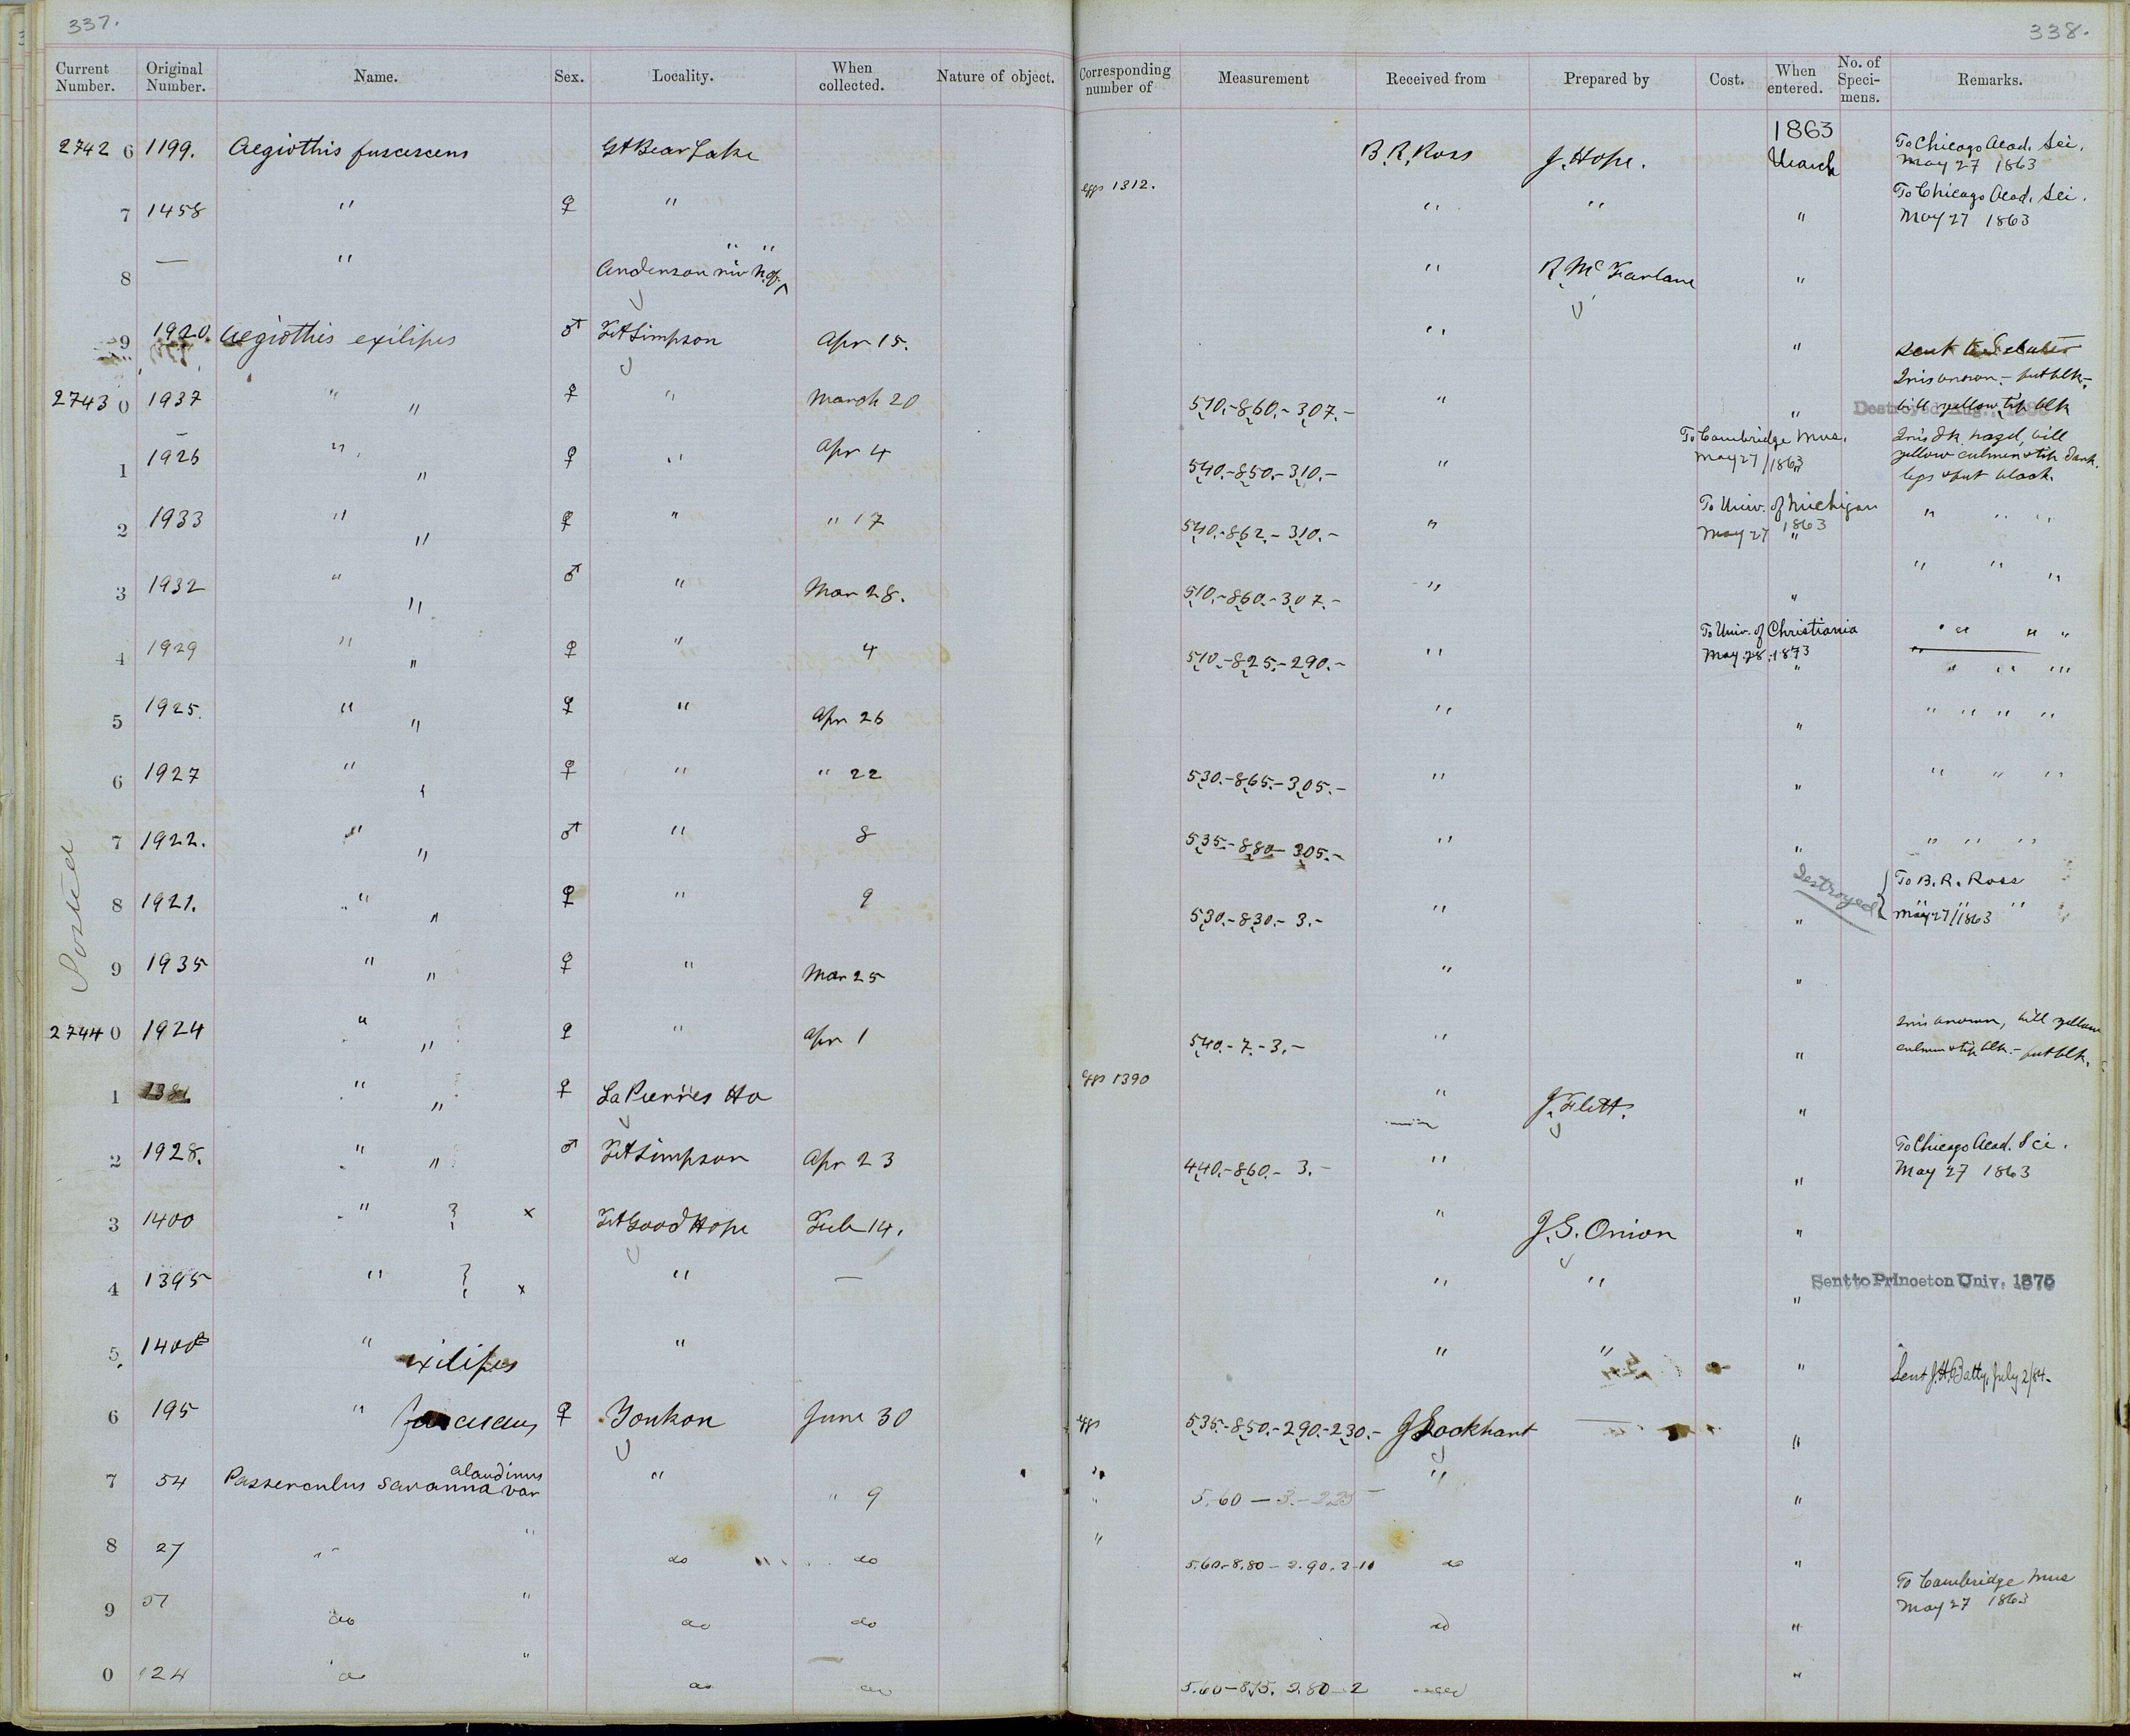 337.
338.
Current Number. Original Number. Name. Sex. Locality. When collected. Nature of object. Corresponding number of Measurement Received from Prepared by Cost. When entered. No. of Speci- mens. Remarks.
1863
2742 6 1199. Aegiothis fuscescens Gt Bear Lake B. R. Ross J. Hope. March To Chicago Acad. Sci. May 27 1863
7 1458 " ♀ " eggs 1312. " " " To Chicago Acad. Sci. May 27 1863
8 — " Anderson riv " " R McFarlane "
9 1920 Aegiothis exilipes ♂ Ft Simpson Apr 15. " " sent to
2743 0 1937 " " ♀ " March 20 510.-860.-307.- " " Iris brown - feet blk - bill yellow, tip blk
Destroyed
1 1926 " " ♀ " Apr 4 540.-850.-310.- " To Cambridge Mus. May 27/1863 " Iris dk. hazel, bill yellow culmen & tip dark. legs & feet black.
2 1933 " " ♀ " " 17 540.-862.-310.- " To Univ. of Michigan May 27 1863 " " " "
3 1932 " " ♂ " Mar 28. 510.-860.-307.- " " " " "
4 1929 " " ♀ " 4 510.-825.-290.- " To Univ. of Christiania May 28. 1873 " " " "
5 1925. " " ♀ " Apr 26 " " " " " "
6 1927 " " ♀ " " 22 530.-865.-305.- " " " " "
7 1922. " " ♂ " 8 535.-880-305.- " " " " "
8 1921. " " ♀ " 9 530.-830.-3.- " " Destroyed To B. R. Ross May 27/1863
9 1935 " " ♀ " Mar 25 " "
Posted
2744 0 1924 " " ♀ " Apr 1 540.-7.-3.- " " Iris brown, bill yellow culmen & tip blk. - feet blk.
1 1381 " " ♀ La Pierres Ho eggs 1390 " J. Flett. "
2 1928. " " ♂ Ft Simpson Apr 23 440.-860.-3.- " " To Chicago Acad. Sci. May 27 1863
3 1400 " ? x Ft Good Hope Feb 14. " J. S. Onion "
4 1395 " ? x " — " " " Sent to Princeton Univ. 1875
5. 1400 " exilipes " " " " Sent J. H. Batty, July 2/84.
6 195 " ♀ Youkon June 30 eggs 535.-850.-290.-230.- J Lockhart "
7 54 Passerculus savanna var alaudinus " " 9 " 5.60 — 3.- 2.25 " "
8 27 " " do do " 5.60-8.80-2.90.2-10 do "
9 57 do " do do do " To Cambridge Mus May 27 1863
0 124 do " do do 5.60-875. 2.80-2 "